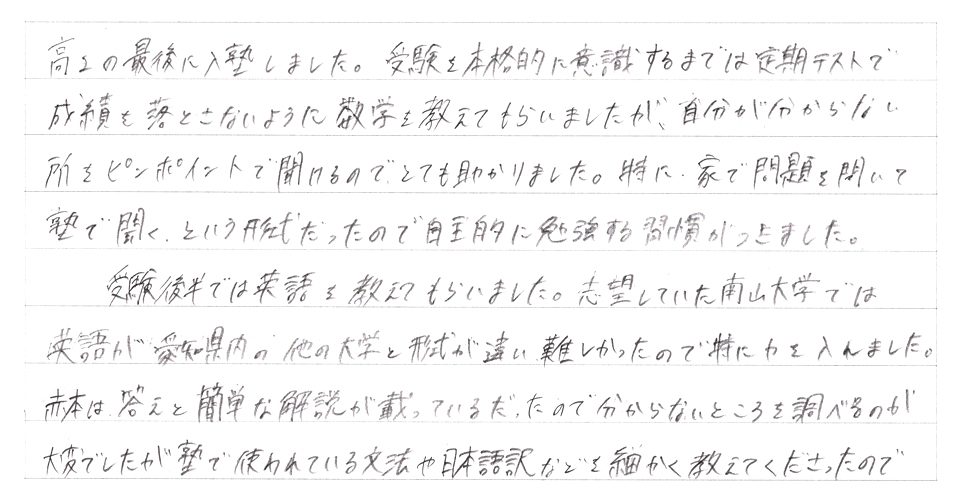 高2の最後に入塾しました。受験を本格的に意識するまでは定期テストで
成績を落とさないように数学を教えてもらいましたが、自分が分からない
所をピンポイントで聞けるので、とても助かりました。特に、家で問題を開いて
塾で聞く、という形式だったので自主的に勉強する習慣がつきました。
受験後半では英語を教えてもらいました。志望していた南山大学では
英語が愛知県内の他の大学と形式が違い難しかったので特に力を入れました。
赤本は、答えと簡単な解説が載っているだったので分からないところを調べるのが
大変でしたが塾で使われている文法や日本語訳などを細かく教えてくださったので